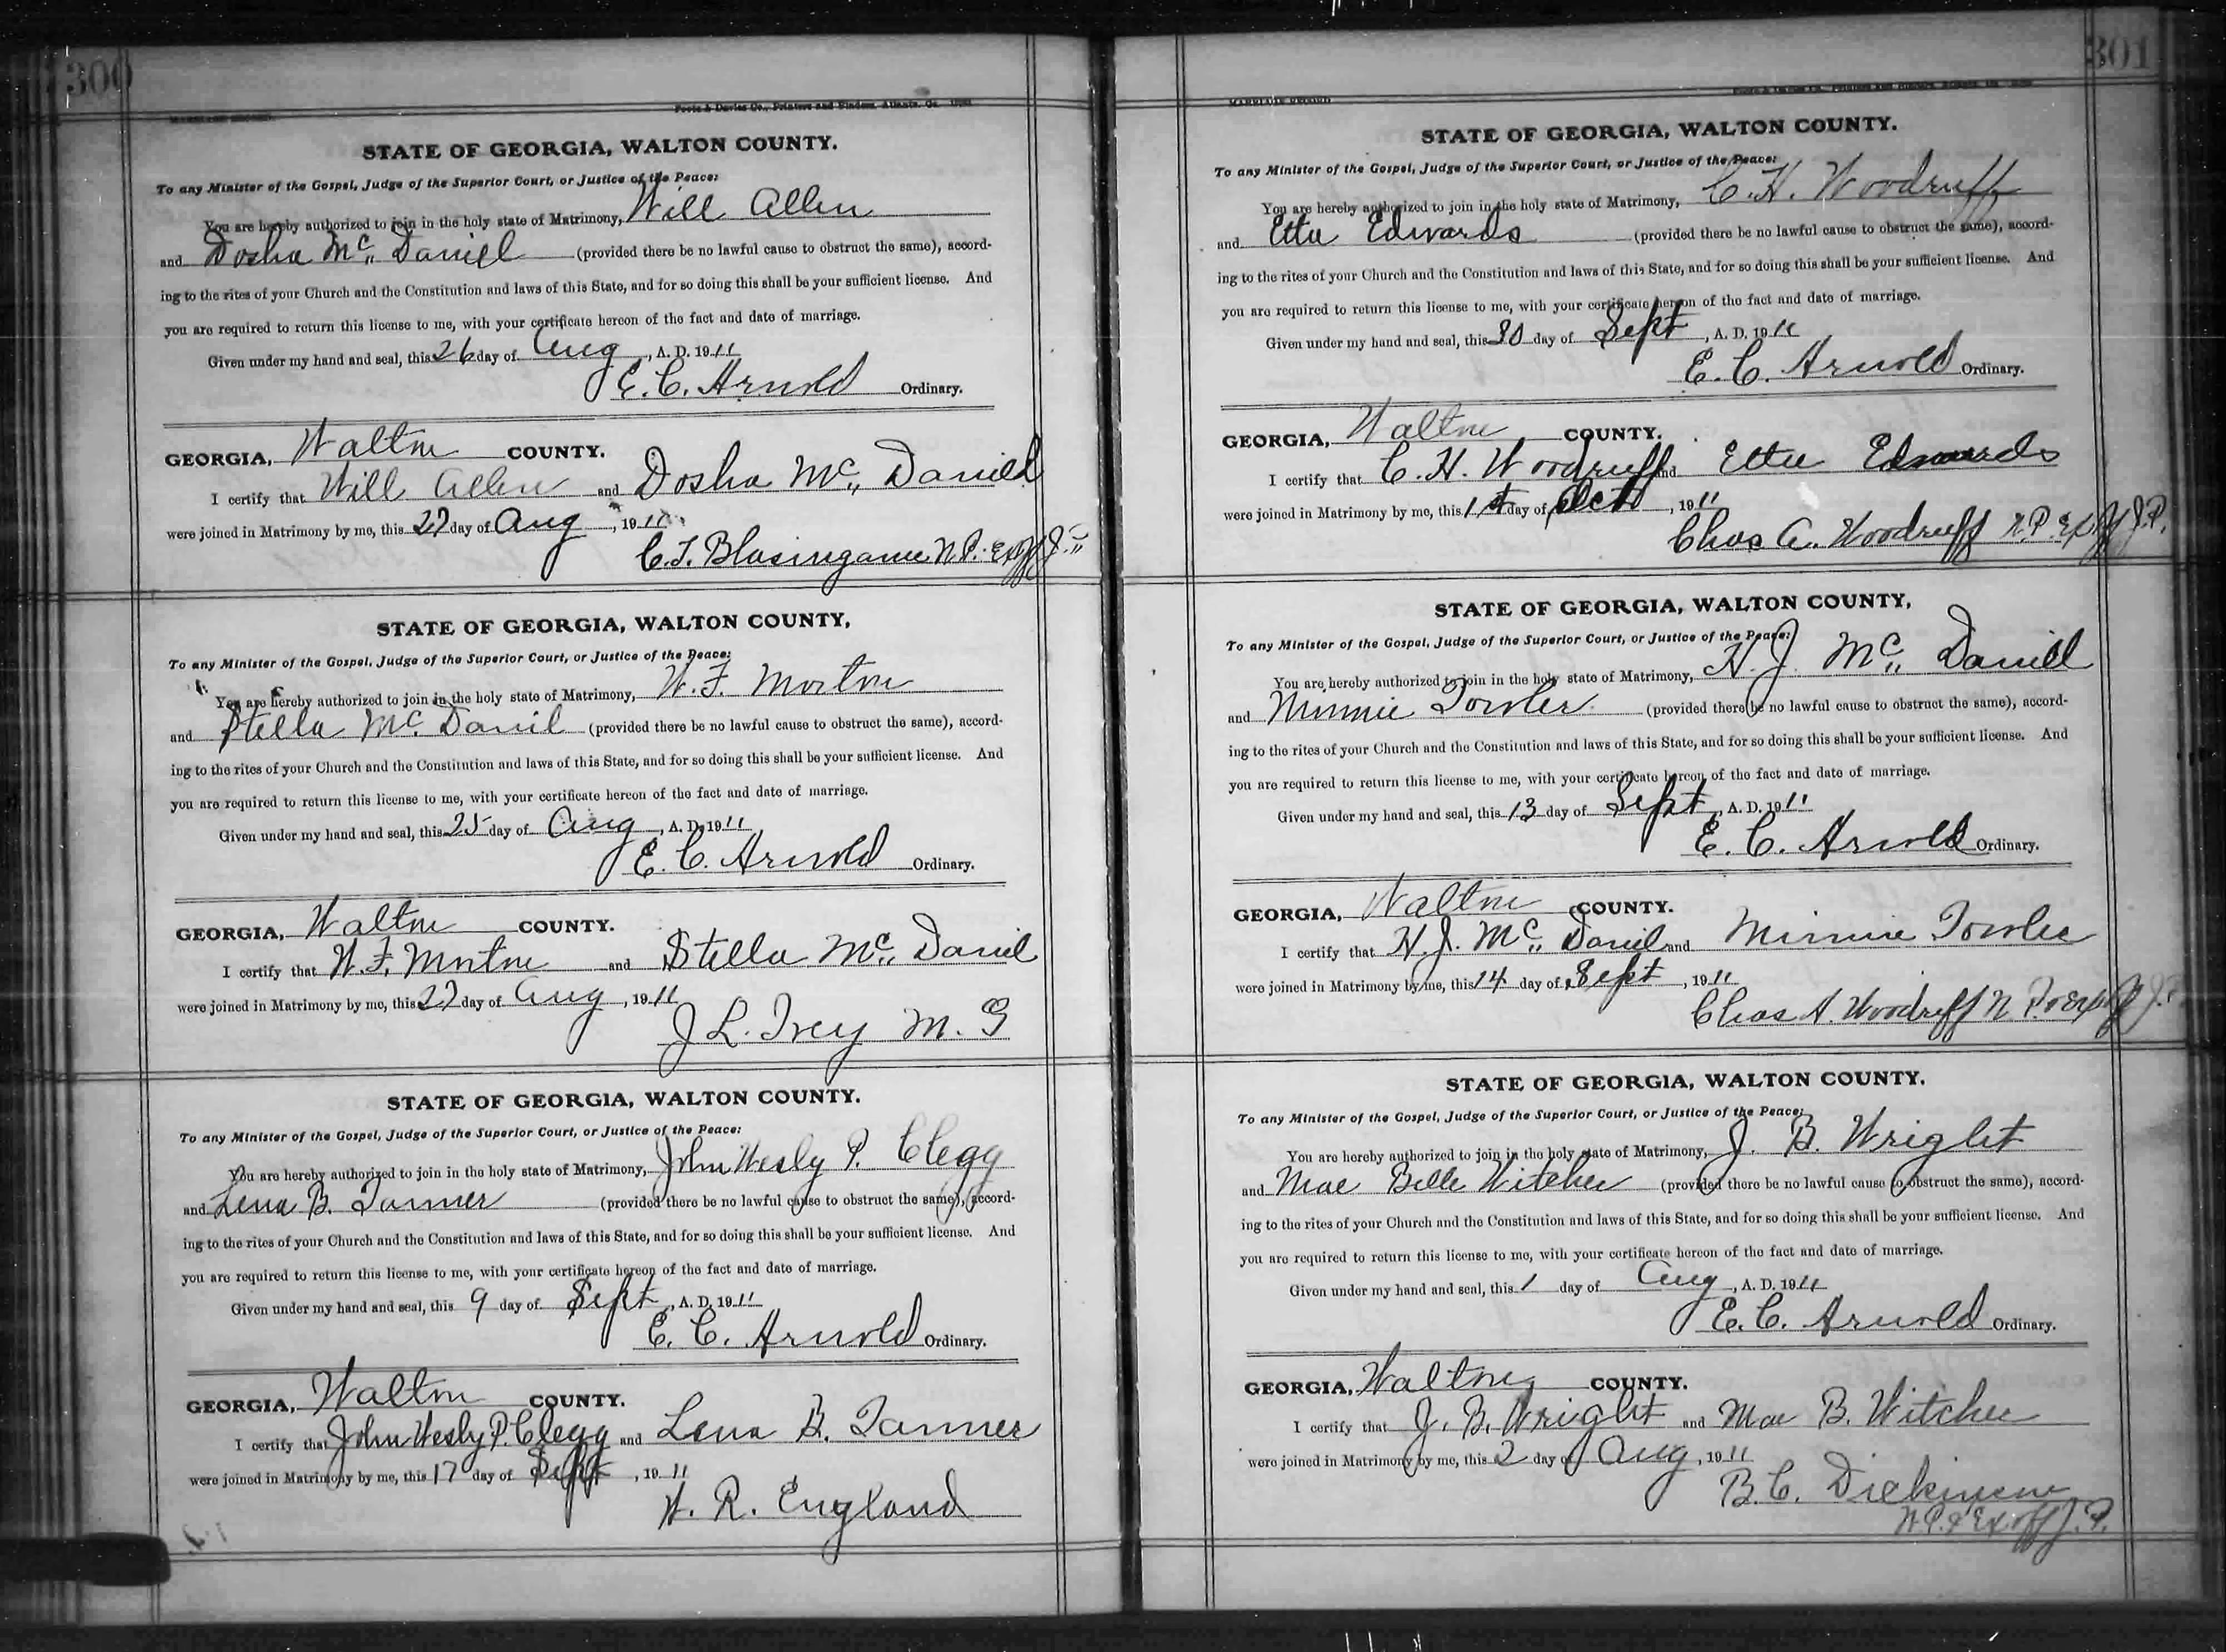 300
Foote & Davies Co., Printers and Binders, Atlanta, Ga.
MARRIAGE RECORD
STATE OF GEORGIA, WALTON COUNTY.
To any Minister of the Gospel, Judge of the Superior Court, or Justice of the Peace:
You are hereby authorized to join in the holy state of Matrimony, Will Allen
and Dosha Mc Daniel (provided there be no lawful cause to obstruct the same), accord-
ing to the rites of your Church and the Constitution and laws of this State, and for so doing this shall be your sufficient license. And
you are required to return this license to me, with your certificate hereon of the fact and date of marriage.
Given under my hand and seal, this 26 day of Aug, A. D. 1911
E. C. Arnold Ordinary.
GEORGIA, Walton COUNTY.
I certify that Will Allen and Dosha Mc Daniel
were joined in Matrimony by me, this 27 day of Aug, 1911
C. T. Blasingame N. P. Ex off J. P.
STATE OF GEORGIA, WALTON COUNTY,
To any Minister of the Gospel, Judge of the Superior Court, or Justice of the Peace:
You are hereby authorized to join in the holy state of Matrimony, W. F. Morton
and Stella Mc Danil (provided there be no lawful cause to obstruct the same), accord-
ing to the rites of your Church and the Constitution and laws of this State, and for so doing this shall be your sufficient license. And
you are required to return this license to me, with your certificate hereon of the fact and date of marriage.
Given under my hand and seal, this 25 day of Aug, A. D. 1911
E. C. Arnold Ordinary.
GEORGIA, Walton COUNTY.
I certify that W. F. Morton and Stella Mc Daniel
were joined in Matrimony by me, this 27 day of Aug, 1911
J L. Ivey M. G
STATE OF GEORGIA, WALTON COUNTY.
To any Minister of the Gospel, Judge of the Superior Court, or Justice of the Peace:
You are hereby authorized to join in the holy state of Matrimony, John Wesly P. Clegg
and Lena B. Tanner (provided there be no lawful cause to obstruct the same), accord-
ing to the rites of your Church and the Constitution and laws of this State, and for so doing this shall be your sufficient license. And
you are required to return this license to me, with your certificate hereon of the fact and date of marriage.
Given under my hand and seal, this 9 day of Sept, A. D. 1911
E. C. Arnold Ordinary.
GEORGIA, Walton COUNTY.
I certify that John Wesly P. Clegg and Lena B. Tanner
were joined in Matrimony by me, this 17 day of Sept, 1911
W. R. England
301
MARRIAGE RECORD
STATE OF GEORGIA, WALTON COUNTY.
To any Minister of the Gospel, Judge of the Superior Court, or Justice of the Peace:
You are hereby authorized to join in the holy state of Matrimony, C. H. Woodruff
and Etta Edwards (provided there be no lawful cause to obstruct the same), accord-
ing to the rites of your Church and the Constitution and laws of this State, and for so doing this shall be your sufficient license. And
you are required to return this license to me, with your certificate hereon of the fact and date of marriage.
Given under my hand and seal, this 30 day of Sept, A. D. 1911
E. C. Arnold Ordinary.
GEORGIA, Walton COUNTY.
I certify that C. H. Woodruff and Etta Edwards
were joined in Matrimony by me, this 1st day of Oct, 1911
Chas A. Woodruff N. P. Ex off J. P.
STATE OF GEORGIA, WALTON COUNTY,
To any Minister of the Gospel, Judge of the Superior Court, or Justice of the Peace:
You are hereby authorized to join in the holy state of Matrimony, H. J. Mc Daniel
and Minnie Towler (provided there be no lawful cause to obstruct the same), accord-
ing to the rites of your Church and the Constitution and laws of this State, and for so doing this shall be your sufficient license. And
you are required to return this license to me, with your certificate hereon of the fact and date of marriage.
Given under my hand and seal, this 13 day of Sept, A. D. 1911
E. C. Arnold Ordinary.
GEORGIA, Walton COUNTY.
I certify that H. J. Mc Daniel and Minnie Towler
were joined in Matrimony by me, this 14 day of Sept, 1911
Chas A. Woodruff N. P. & Ex off J. P.
STATE OF GEORGIA, WALTON COUNTY.
To any Minister of the Gospel, Judge of the Superior Court, or Justice of the Peace:
You are hereby authorized to join in the holy state of Matrimony, J. B. Wright
and Mae Belle Witcher (provided there be no lawful cause to obstruct the same), accord-
ing to the rites of your Church and the Constitution and laws of this State, and for so doing this shall be your sufficient license. And
you are required to return this license to me, with your certificate hereon of the fact and date of marriage.
Given under my hand and seal, this 1 day of Aug, A. D. 1911
E. C. Arnold Ordinary.
GEORGIA, Walton COUNTY.
I certify that J. B. Wright and Mae B. Witcher
were joined in Matrimony by me, this 2 day of Aug, 1911
B. C. Dickinson
N. P. & Ex off J. P.